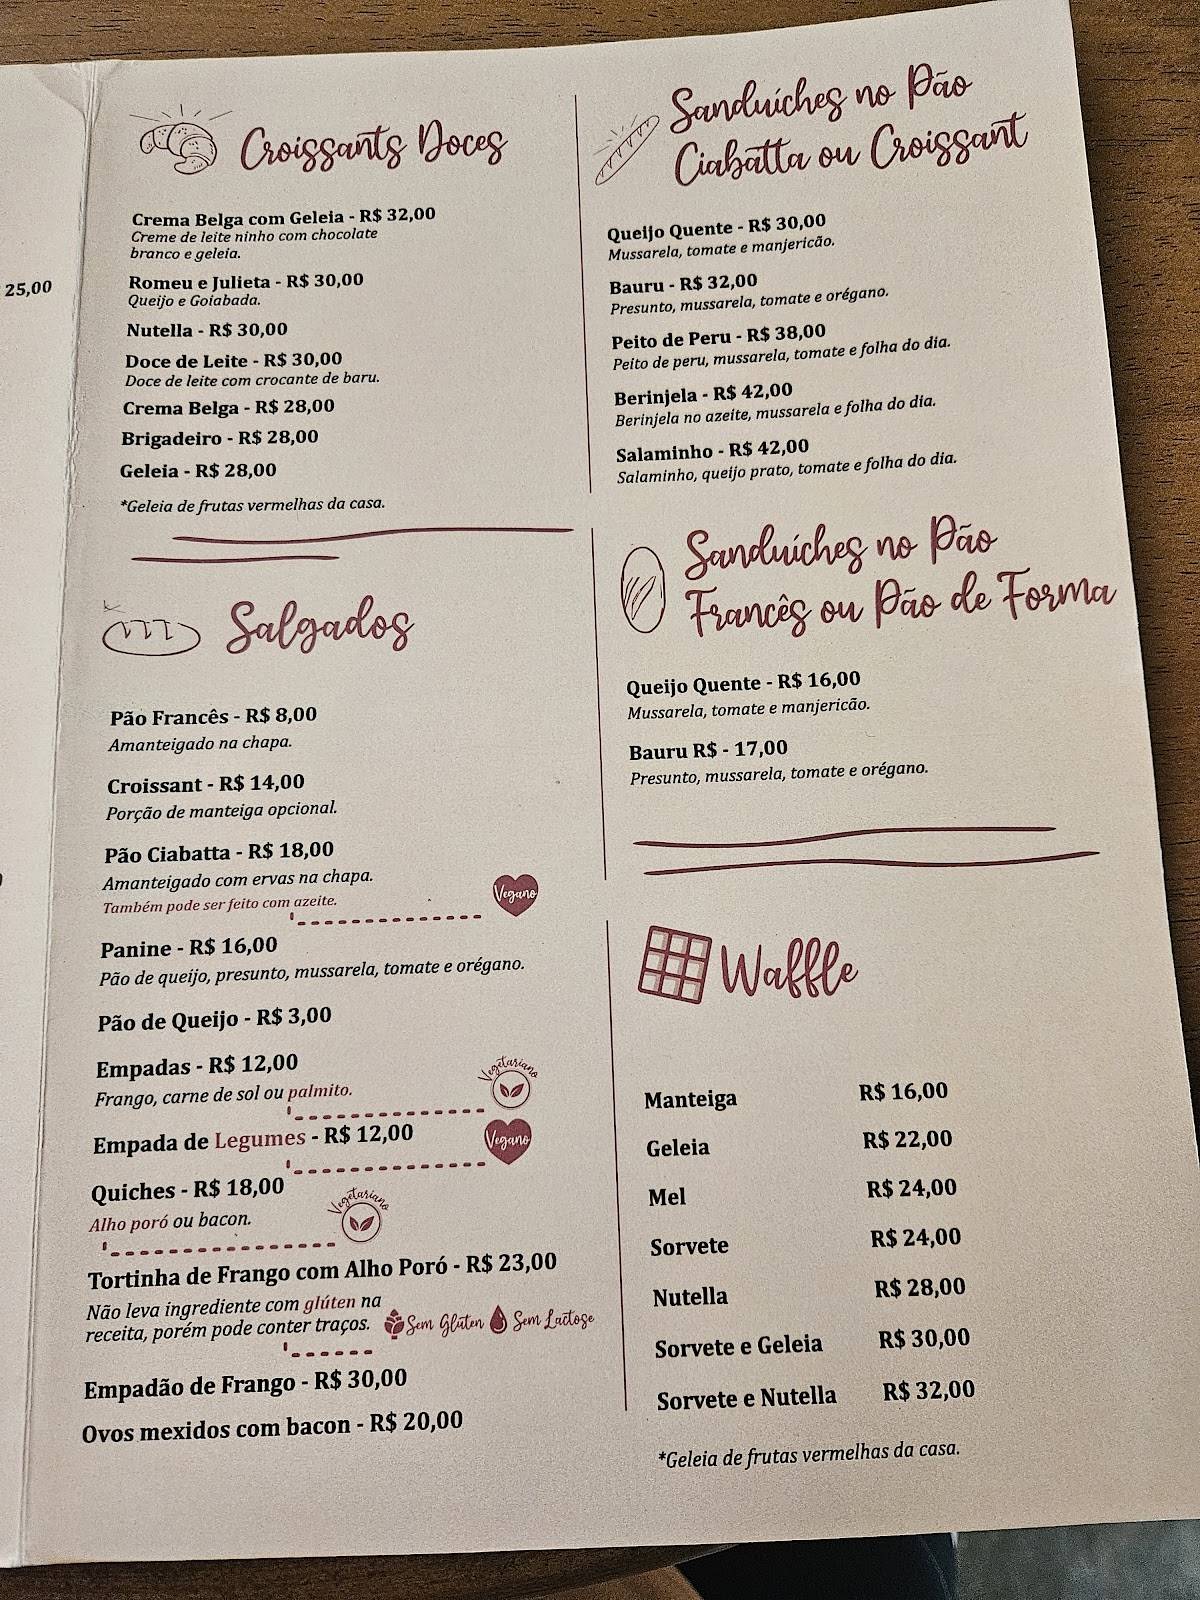 25,00
Croissants Doces
Crema Belga com Geleia - R$ 32,00
Creme de leite ninho com chocolate
branco e geleia.
Romeu e Julieta - R$ 30,00
Queijo e Goiabada.
Nutella - R$ 30,00
Doce de Leite - R$ 30,00
Doce de leite com crocante de baru.
Crema Belga - R$ 28,00
Brigadeiro - R$ 28,00
Geleia - R$ 28,00
*Geleia de frutas vermelhas da casa.
Salgados
Pão Francês - R$ 8,00
Amanteigado na chapa.
Croissant - R$ 14,00
Porção de manteiga opcional.
Pão Ciabatta - R$ 18,00
Amanteigado com ervas na chapa.
Também pode ser feito com azeite.
Vegano
Panine - R$ 16,00
Pão de queijo, presunto, mussarela, tomate e orégano.
Pão de Queijo - R$ 3,00
Empadas - R$ 12,00
Frango, carne de sol ou palmito.
Vegetariano
Empada de Legumes - R$ 12,00
Vegano
Quiches - R$ 18,00
Alho poró ou bacon.
Vegetariano
Tortinha de Frango com Alho Poró - R$ 23,00
Não leva ingrediente com glúten na
receita, porém pode conter traços.
Sem Glúten Sem Lactose
Empadão de Frango - R$ 30,00
Ovos mexidos com bacon - R$ 20,00
Sanduíches no Pão
Ciabatta ou Croissant
Queijo Quente - R$ 30,00
Mussarela, tomate e manjericão.
Bauru - R$ 32,00
Presunto, mussarela, tomate e orégano.
Peito de Peru - R$ 38,00
Peito de peru, mussarela, tomate e folha do dia.
Berinjela - R$ 42,00
Berinjela no azeite, mussarela e folha do dia.
Salaminho - R$ 42,00
Salaminho, queijo prato, tomate e folha do dia.
Sanduíches no Pão
Francês ou Pão de Forma
Queijo Quente - R$ 16,00
Mussarela, tomate e manjericão.
Bauru R$ - 17,00
Presunto, mussarela, tomate e orégano.
Waffle
Manteiga R$ 16,00
Geleia R$ 22,00
Mel R$ 24,00
Sorvete R$ 24,00
Nutella R$ 28,00
Sorvete e Geleia R$ 30,00
Sorvete e Nutella R$ 32,00
*Geleia de frutas vermelhas da casa.